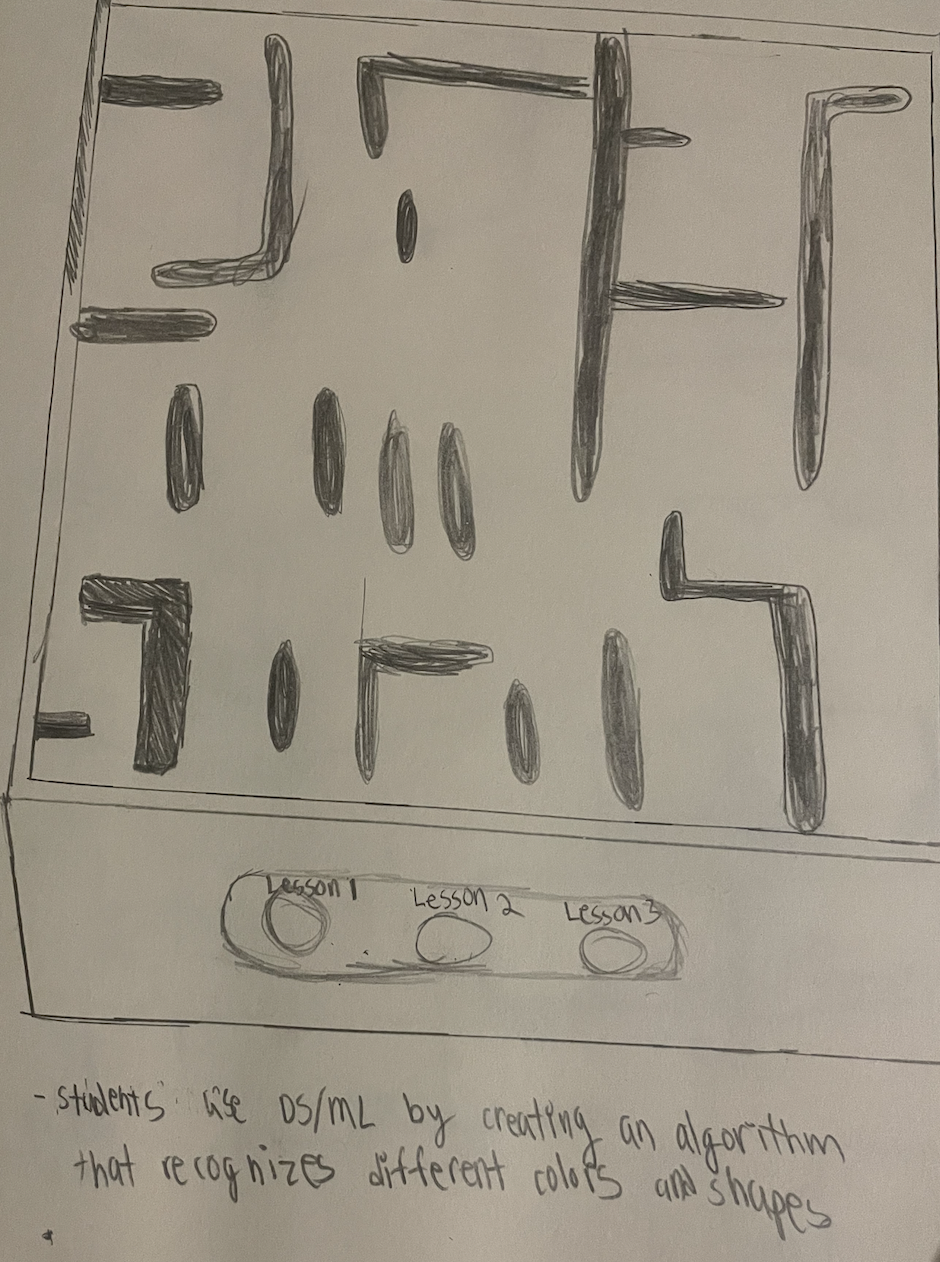 Lesson 1
Lesson 2
Lesson 3
- students use DS/ML by creating an algorithm
that recognizes different colors and shapes